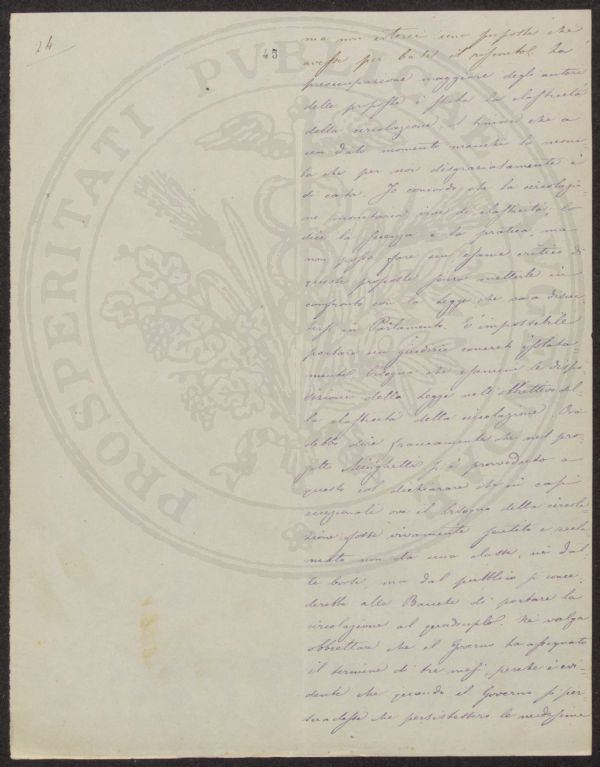 24
45
ma non esservi una proposta che
avesse per base il
preoccupazione maggiore degli autori
delle proposte è stata la elasticità
della circolazione, il timore che a
un dato momento manchi la mone-
ta che per noi disgraziatamente è
di carta. Io concordo che la circolazio
ne monetaria di elasticità, lo
dice la scienza e la pratica, ma
non posso fare un esame critico di
queste proposte senza metterle in
confronto con la legge che va a discu
tersi in Parlamento. È impossibile
portare un giudizio concreto isolata-
mente; bisogna che esamini le dispo
sizioni della legge nell'obbiettivo del
la elasticità della circolazione. Ora
debbo dire francamente che nel pro-
getto Minghetti si è provveduto a
questo col dichiarare che in casi
eccezionali ove il bisogno della circola
zione fosse vivamente sentito e recla
mato non da una classe, nè dal
le borse, ma dal pubblico si conce-
derebbe alle Banche di portare la
circolazione al quadruplo. Nè valga
obbiettare che il Governo ha assegnato
il termine di tre mesi, perchè è evi-
dente che quando il Governo si per
suadesse che persistessero le medesime
PROSPERITATI PVBLICAE